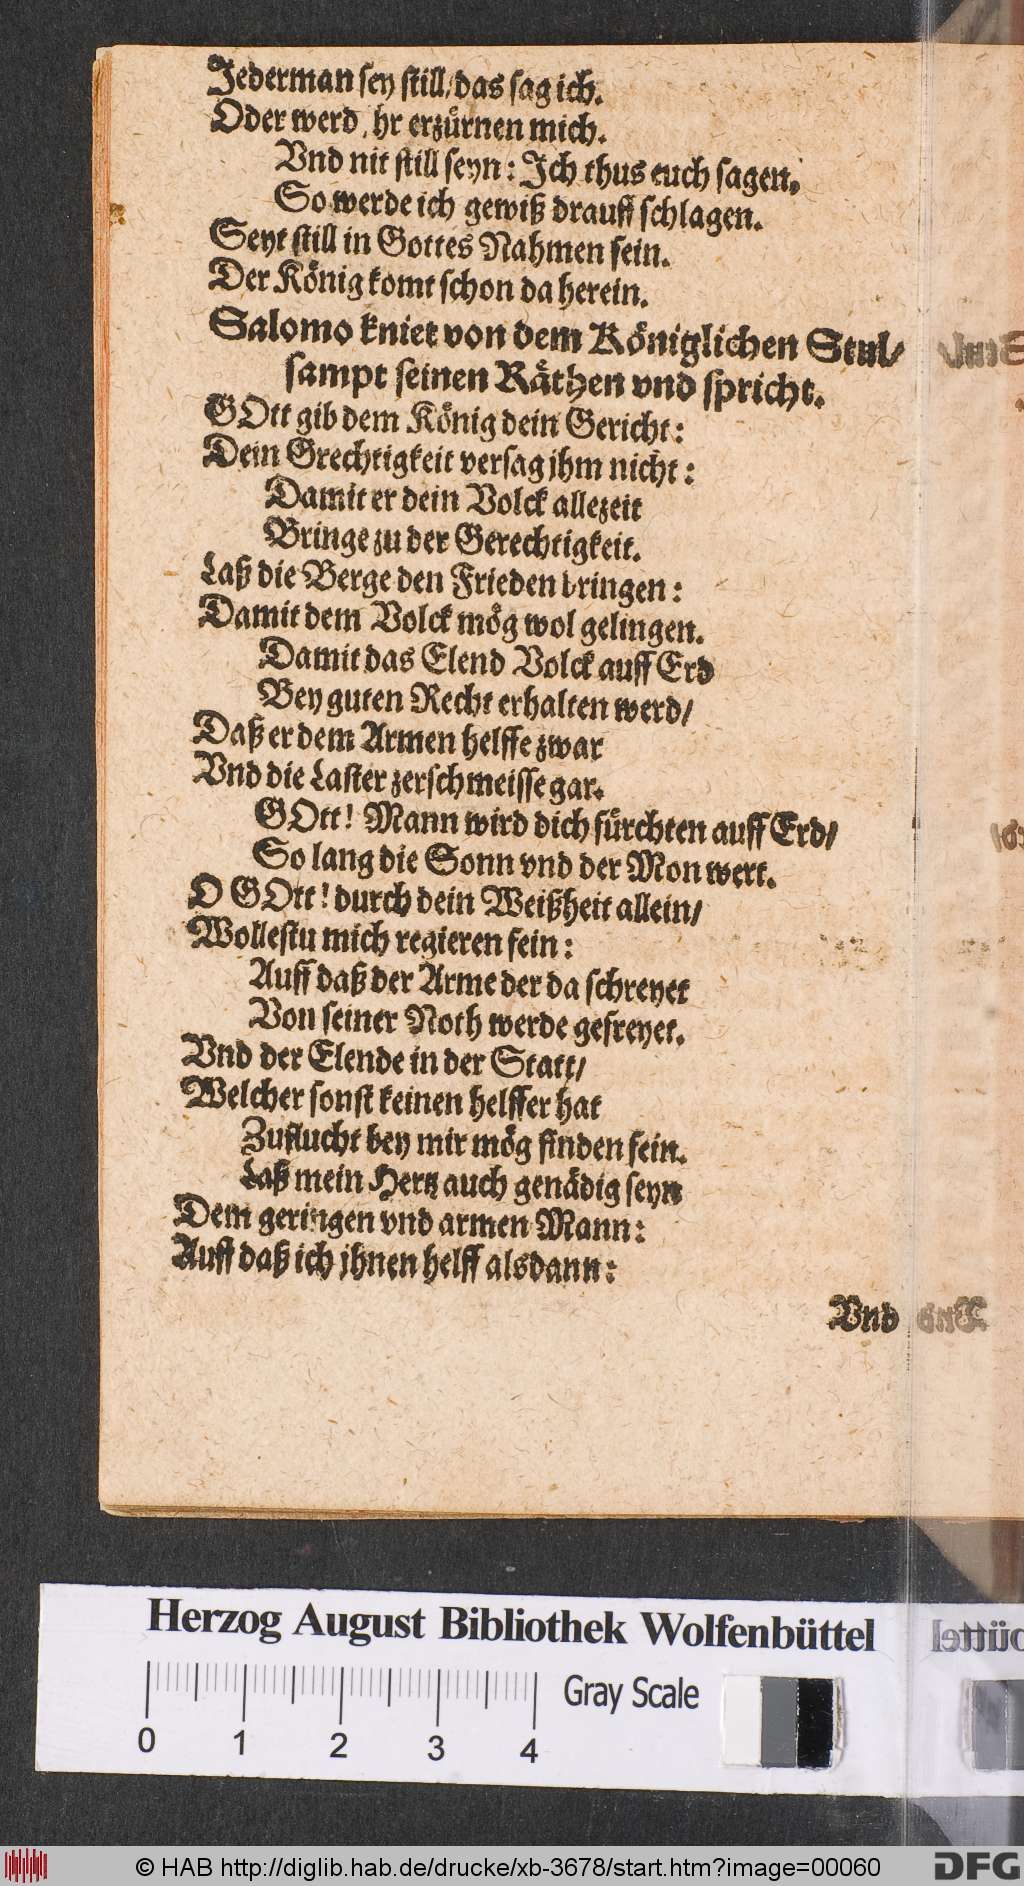 Jederman sey still/das sag ich.
Oder werd jhr erzürnen mich.
Vnd nit still seyn: Ich thus euch sagen,
So werde ich gewiß drauff schlagen.
Seyt still in Gottes Nahmen fein.
Der König komt schon da herein.
Salomo kniet von dem Königlichen Stul/
sampt seinen Räthen vnd spricht.
GOtt gib dem König dein Gericht:
Dein Grechtigkeit versag jhm nicht:
Damit er dein Volck allezeit
Bringe zu der Gerechtigkeit.
Laß die Berge den Frieden bringen:
Damit dem Volck mög wol gelingen.
Damit das Elend Volck auff Erd
Bey guten Recht erhalten werd/
Daß er dem Armen helffe zwar
Vnd die Laster zerschmeisse gar.
GOtt! Mann wird dich fürchten auff Erd/
So lang die Sonn vnd der Mon wert.
O GOtt! durch dein Weißheit allein/
Wollestu mich regieren fein:
Auff daß der Arme der da schreyet
Von seiner Noth werde gefreyet.
Vnd der Elende in der Statt/
Welcher sonst keinen helffer hat
Zuflucht bey mir mög finden fein.
Laß mein Hertz auch genädig seyn
Dem geringen vnd armen Mann:
Auff daß ich jhnen helff alsdann:
Vnd
Herzog August Bibliothek Wolfenbüttel
Gray Scale
0 1 2 3 4
© HAB http://diglib.hab.de/drucke/xb-3678/start.htm?image=00060
DFG